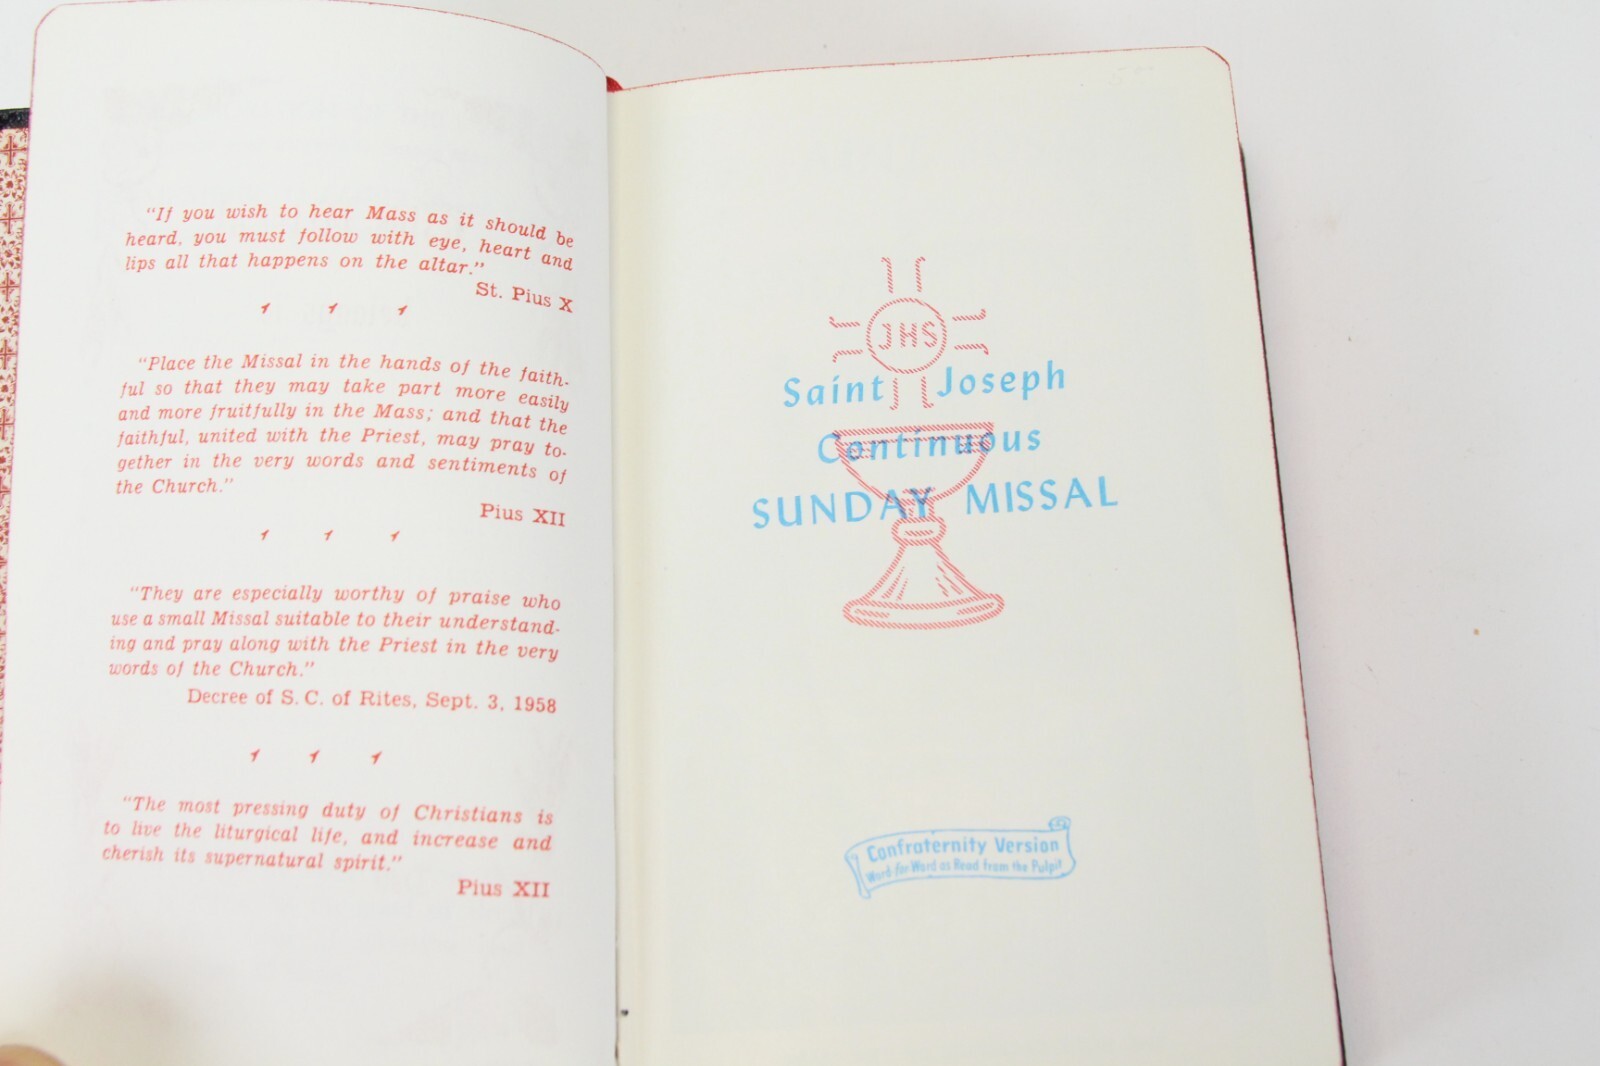 "If you wish to hear Mass as it should be
heard, you must follow with eye, heart and
lips all that happens on the altar."
St. Pius X
"Place the Missal in the hands of the faith-
ful so that they may take part more easily
and more fruitfully in the Mass; and that the
faithful, united with the Priest, may pray to-
gether in the very words and sentiments of
the Church."
Pius XII
"They are especially worthy of praise who
use a small Missal suitable to their understand-
ing and pray along with the Priest in the very
words of the Church."
Decree of S. C. of Rites, Sept. 3, 1958
"The most pressing duty of Christians is
to live the liturgical life, and increase and
cherish its supernatural spirit."
Pius XII
JHS
Saint Joseph
Continuous
SUNDAY MISSAL
Confraternity Version
Word for Word as Read from the Pulpit